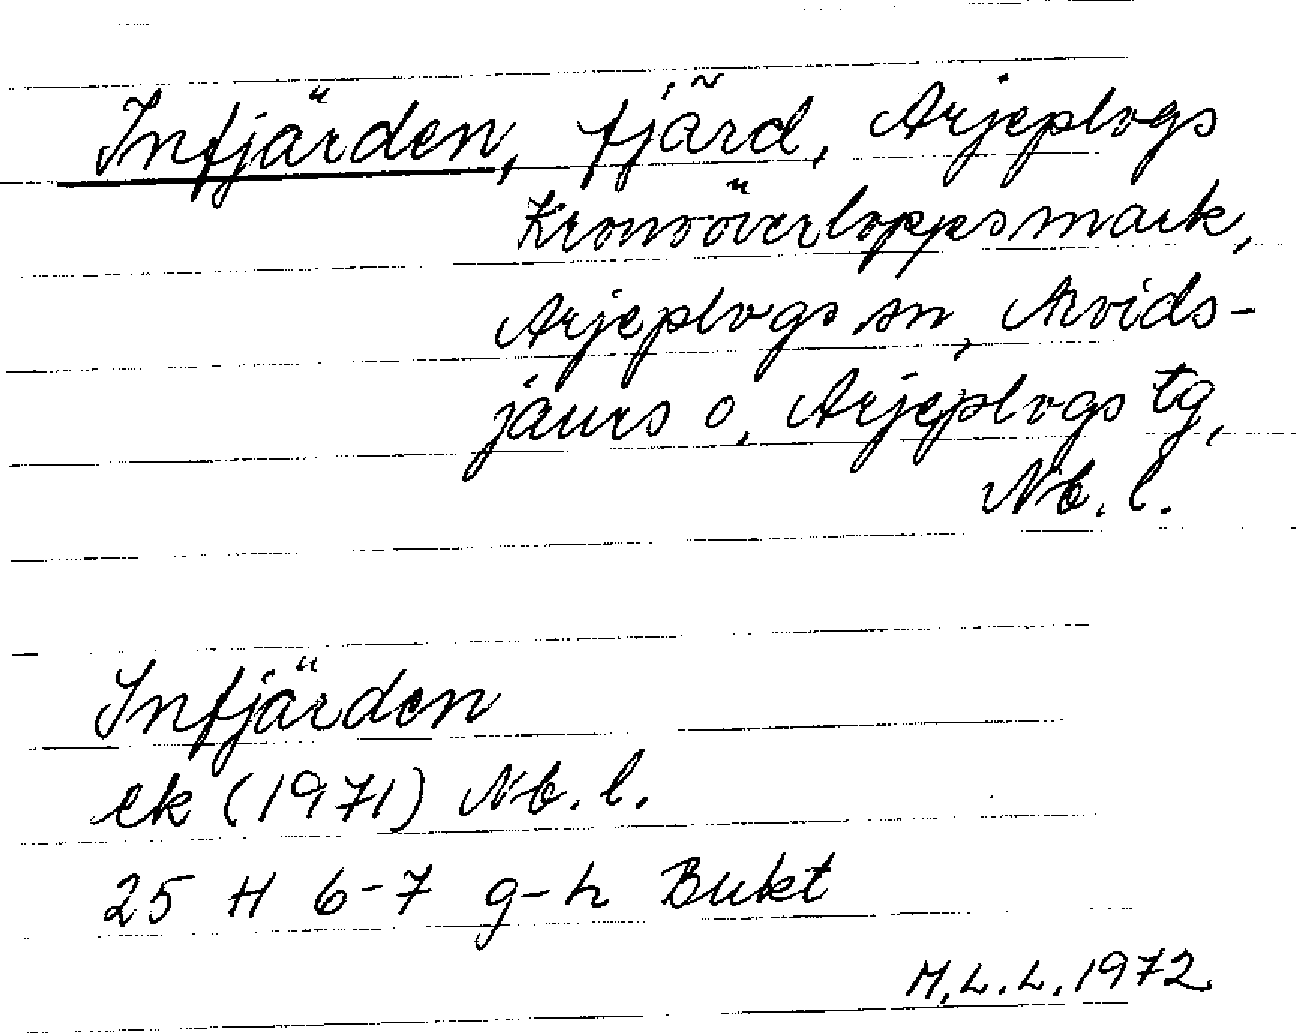 Infjärden, fjärd, Arjeplogs
Kronoöverloppsmark,
Arjeplogs sn, Arvids-
jaurs o, Arjeplogs tg,
Nb. l.
Infjärden
ek (1971) Nb. l.
25 H 6-7 g-h Bukt
M.L.L. 1972